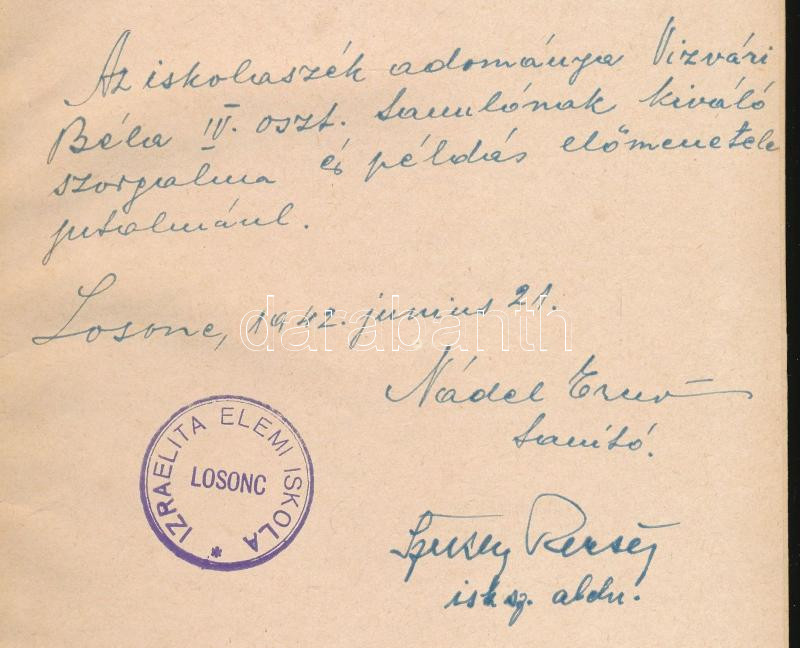 Az iskolaszék adománya Vizvári
Béla IV. oszt. tanulónak kiváló
szorgalma és példás előmenetele
jutalmául.
Losonc, 1942. június 21.
darabanth
Nádel Ernő
tanító.
IZRAELITA ELEMI ISKOLA *
LOSONC
isksz. aldn.